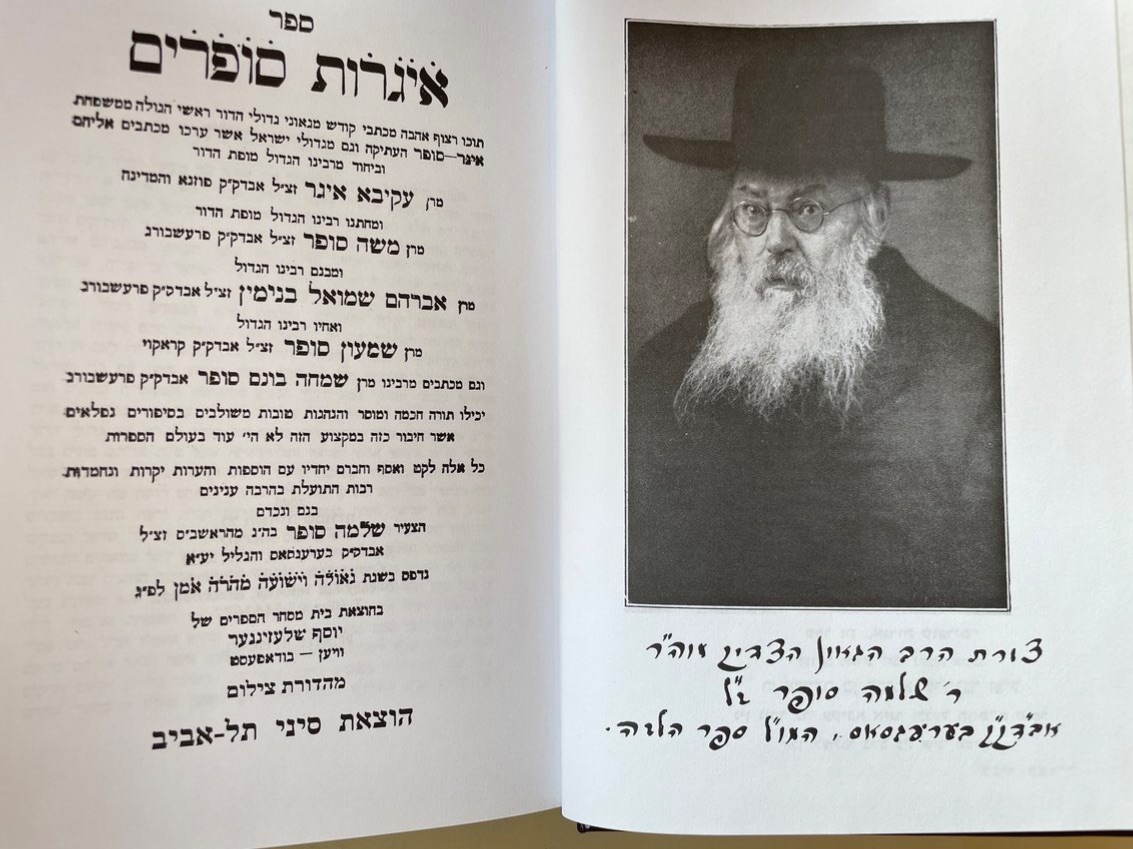 ספר
איגרות סופרים
תוכו רצוף אהבה מכתבי קודש מגאוני גדולי הדור ראשי הגולה ממשפחת
איגר—סופר העתיקה וגם מגדולי ישראל אשר ערכו מכתבים אליהם
וביחוד מרבינו הגדול מופת הדור
מרן עקיבא איגר זצ״ל אבדק״ק פוזנא והמדינה
ומחתנו רבינו הגדול מופת הדור
מרן משה סופר זצ״ל אבדק״ק פרעשבורג
ומבנם רבינו הגדול
מרן אברהם שמואל בנימין זצ״ל אבדק״ק פרעשבורג
ואחיו רבינו הגדול
מרן שמעון סופר זצ״ל אבדק״ק קראקוי
וגם מכתבים מרבינו מרן שמחה בונם סופר אבדק״ק פרעשבורג
יכילו תורה חכמה ומוסר והנהגות טובות משולבים בסיפורים נפלאים
אשר חיבור כזה במקצוע הזה לא הי׳ עוד בעולם הספרות
כל אלה לקט ואסף וחברם יחדיו עם הוספות והערות יקרות ונחמדות
רבות התועלת בהרבה ענינים
בנם ונכדם
הצעיר שלמה סופר בה״ג מהראשב״ס זצ״ל
אבדק״ק בערעגסאס והגליל יע״א
נדפס בשנת גאולה וישועה מהרה אמן לפ״ג
בהוצאת בית מסחר הספרים של
יוסף שלעזינגער
וויען — בודאפעסט
מהדורת צילום
הוצאת סיני תל-אביב
צורת הרב הגאון הצדיק עוה״ר
ר׳ שלמה סופר ז״ל
אבד״ק בערעגסאס, המו״ל ספר הלזה.